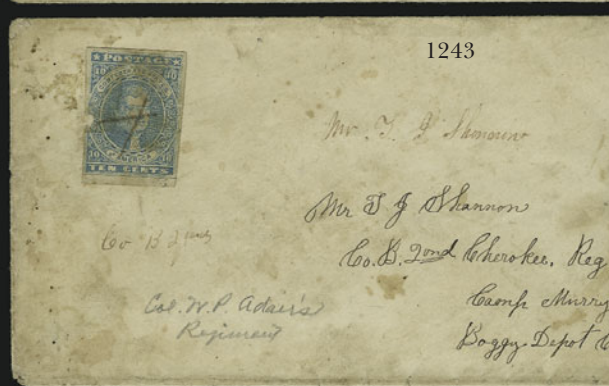 1243
POSTAGE
10 10
10 10
TEN CENTS
Mr. T. J. Shannon
Mr T J Shannon
Co. B. 2ond Cherokee. Reg
Camp Murry
Boggy Depot C
Co B 2
Col. W. P. Adair's
Regiment